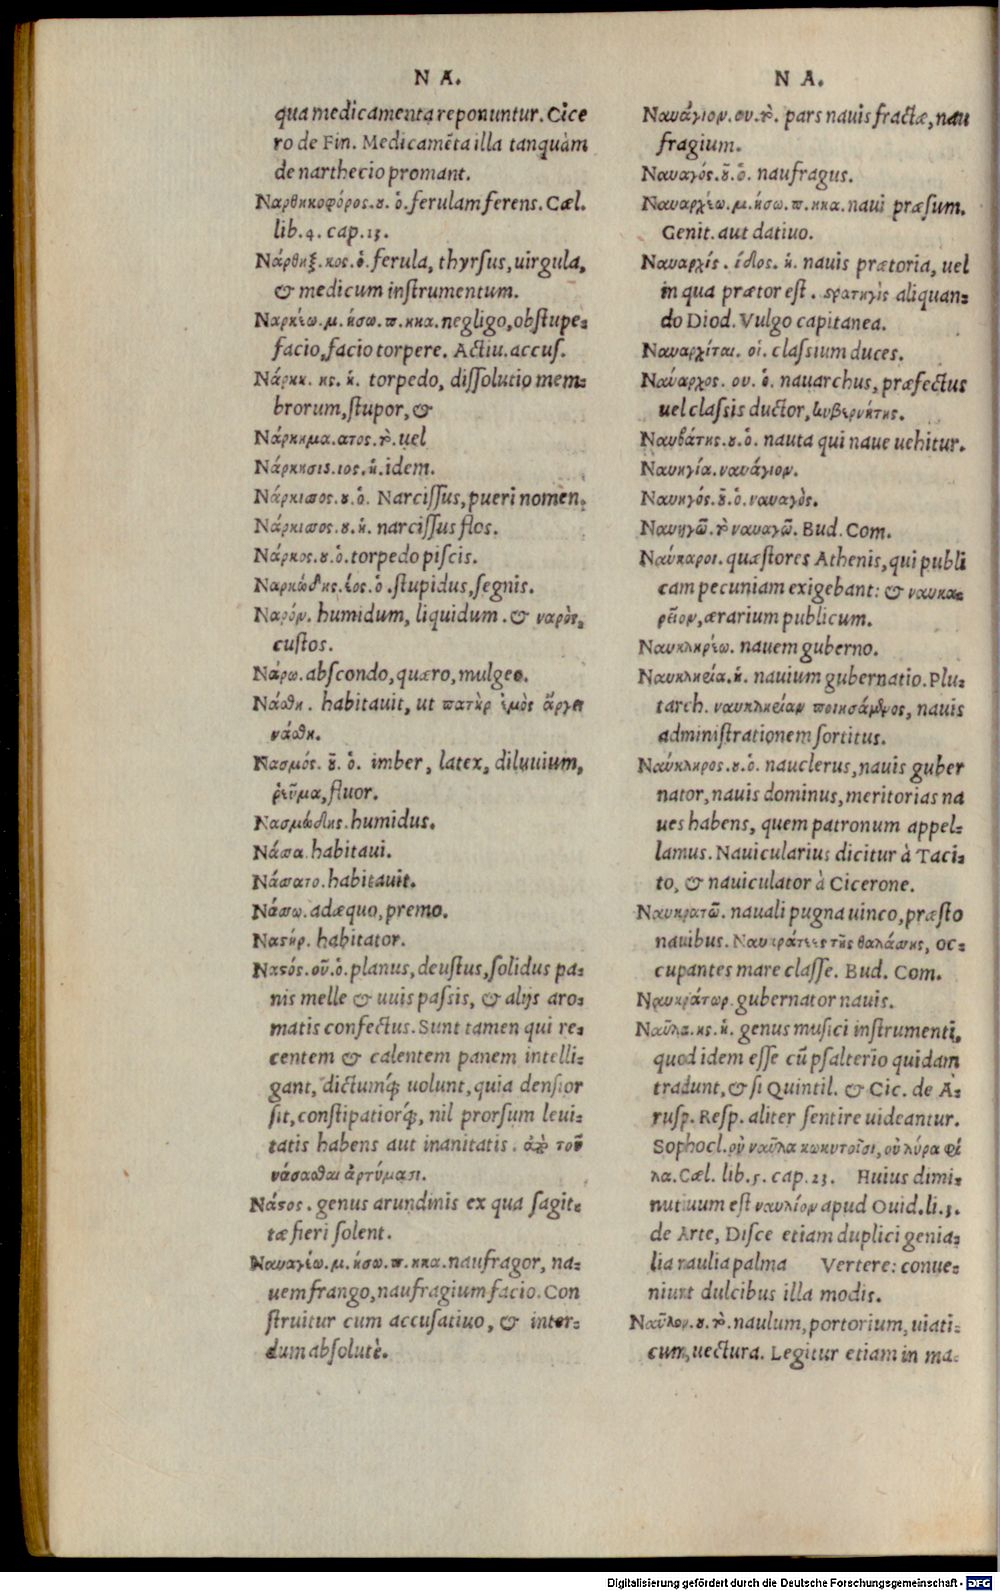 N A.
qua medicamenta reponuntur. Cice
ro de Fin. Medicamẽta illa tanquàm
de narthecio promant.
Ναρθηκοφόρος. ου. ὁ. ferulam ferens. Cæl.
lib. 4. cap. 13.
Νάρθηξ. κος. ὁ. ferula, thyrsus, uirgula,
& medicum instrumentum.
Ναρκέω. μ. ήσω. π. ηκα. negligo, obstupe-
facio, facio torpere. Actiu. accus.
Νάρκη. ης. ἡ. torpedo, dissolutio mem-
brorum, stupor, &
Νάρκημα. ατος. τὸ. uel
Νάρκησις. ιος. ἡ. idem.
Νάρκισσος. ου. ὁ. Narcissus, pueri nomen.
Νάρκισσος. ου. ἡ. narcissus flos.
Νάρκος. ου. ὁ. torpedo piscis.
Ναρκώδης. έος. ὁ. stupidus, segnis.
Ναρόν. humidum, liquidum. & ναρὸς,
custos.
Νάρω. abscondo, quæro, mulgeo.
Νάσθη. habitauit, ut πατὴρ ἐμὸς ἄργεϊ
νάσθη.
Νασμός. οῦ. ὁ. imber, latex, diluuium,
ῥεῦμα, fluor.
Νασμώδης. humidus.
Νάσσα. habitaui.
Νάσσατο. habitauit.
Νάσσω. adæquo, premo.
Ναστήρ. habitator.
Ναστός. οῦ. ὁ. planus, deustus, solidus pa-
nis melle & uuis passis, & alijs aro-
matis confectus. Sunt tamen qui re-
centem & calentem panem intelli-
gant, dictumq́; uolunt, quia densior
sit, constipatiorq́;, nil prorsum leui-
tatis habens aut inanitatis. ἀπὸ τοῦ
νάσασθαι ἀρτύμασι.
Νάστος. genus arundinis ex qua sagit-
tæ fieri solent.
Ναυαγέω. μ. ήσω. π. ηκα. naufragor, na-
uem frango, naufragium facio. Con
struitur cum accusatiuo, & inter-
dum absolutè.
N A.
Ναυάγιον. ου. τὸ. pars nauis fractæ, nau
fragium.
Ναυαγός. οῦ. ὁ. naufragus.
Ναυαρχέω. μ. ήσω. π. ηκα. naui præsum.
Genit. aut datiuo.
Ναυαρχίς. ίδος. ἡ. nauis prætoria, uel
in qua prætor est. στρατηγὶς aliquan-
do Diod. Vulgo capitanea.
Ναυαρχίται. οἱ. classium duces.
Ναύαρχος. ου. ὁ. nauarchus, præfectus
uel classis ductor, κυβερνήτης.
Ναυβάτης. ου. ὁ. nauta qui naue uehitur.
Ναυηγία. ναυάγιον.
Ναυηγός. οῦ. ὁ. ναυαγὸς.
Ναυηγῶ. τὸ ναυαγῶ. Bud. Com.
Ναύκαροι. quæstores Athenis, qui publi
cam pecuniam exigebant: & ναυκα-
ρεῖον, ærarium publicum.
Ναυκληρέω. nauem guberno.
Ναυκληρία. ἡ. nauium gubernatio. Plu-
tarch. ναυκληρίαν ποιησάμενος, nauis
administrationem sortitus.
Ναύκληρος. ου. ὁ. nauclerus, nauis guber
nator, nauis dominus, meritorias na
ues habens, quem patronum appel-
lamus. Nauicularius dicitur à Taci-
to, & nauiculator à Cicerone.
Ναυκρατῶ. nauali pugna uinco, præsto
nauibus. Ναυκράτεις τῆς θαλάσσης, oc-
cupantes mare classe. Bud. Com.
Ναυκράτωρ. gubernator nauis.
Ναῦλα. ης. ἡ. genus musici instrumenti,
quod idem esse cũ psalterio quidam
tradunt, & si Quintil. & Cic. de A-
rusp. Resp. aliter sentire uideantur.
Sophocl. οὐ ναῦλα κωκυτοῖσι, οὐ λύρα φί
λα. Cæl. lib. 5. cap. 23. Huius dimi-
nutiuum est ναυλίον apud Ouid. li. 3.
de Arte, Disce etiam duplici genia-
lia naulia palma Vertere: conue-
niunt dulcibus illa modis.
Ναῦλον. ου. τὸ. naulum, portorium, uiati-
cum, uectura. Legitur etiam in ma-
Digitalisierung gefördert durch die Deutsche Forschungsgemeinschaft - DFG